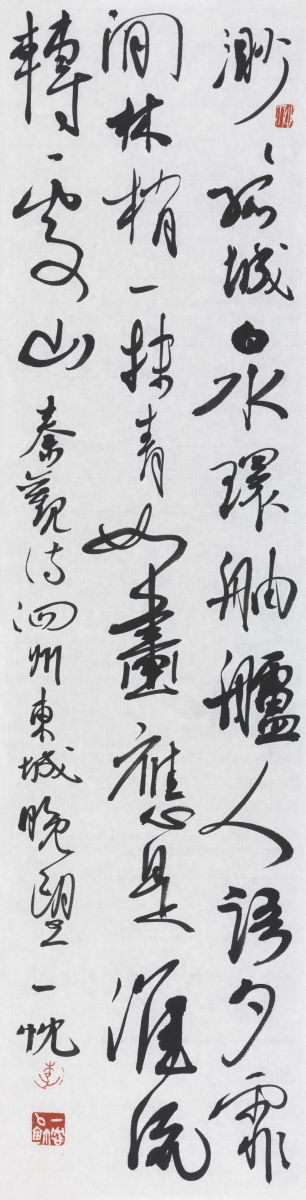 渺〻孤城白水環舳艫人語夕霏
間林梢一抹青如畫應是淮流
轉處山 秦觀詩泗州東城晚望 一忱